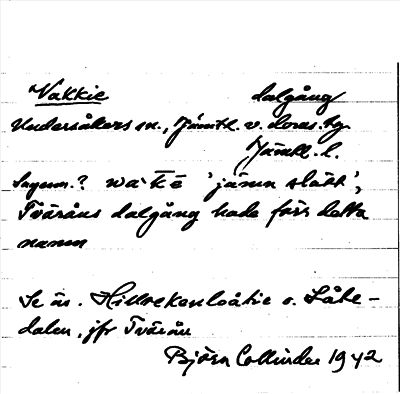 Vakkie dalgång
Undersåkers sn., Jämtl. v. doms. tg.
Jämtl. l.
Sagesm.? 'jämn slätt',
Tvåråns dalgång hade förr detta
namn
Se än. o. Låte-
dalen, jfr Tvärån
Björn Collinder 1942